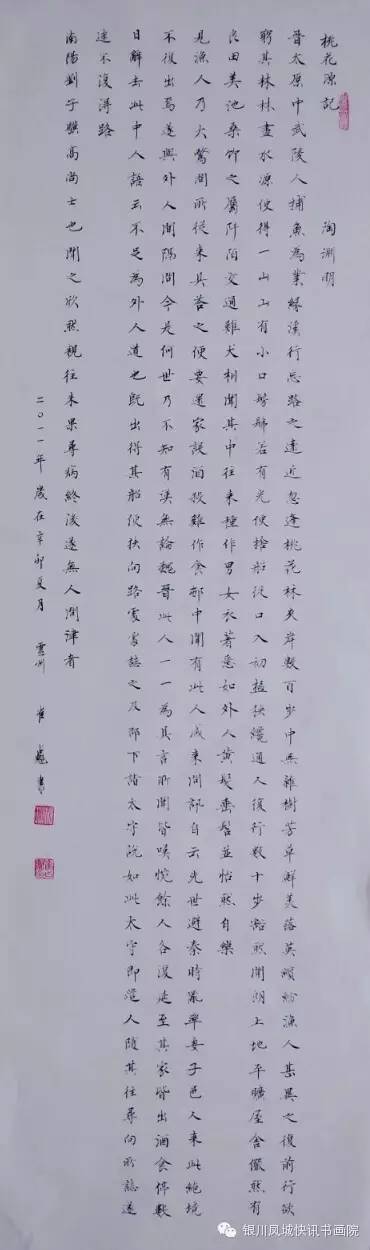 桃花源記 陶淵明
晉太原中武陵人捕魚為業緣溪行忘路之遠近忽逢桃花林夾岸數百步中無雜樹芳草鮮美落英繽紛漁人甚異之復前行欲
窮其林林盡水源便得一山山有小口髣髴若有光便捨船從口入初極狹纔通人復行數十步豁然開朗土地平曠屋舍儼然有
良田美池桑竹之屬阡陌交通雞犬相聞其中往來種作男女衣著悉如外人黃髮垂髫並怡然自樂
見漁人乃大驚問所從來具答之便要還家設酒殺雞作食邨中聞有此人咸來問訊自云先世避秦時亂率妻子邑人來此絕境
不復出焉遂與外人間隔問今是何世乃不知有漢無論魏晉此人一一為具言所聞皆嘆惋餘人各復延至其家皆出酒食停數
日辭去此中人語云不足為外人道也既出得其船便扶向路處處誌之及郡下詣太守說如此太守即遣人隨其往尋向所誌遂
迷不復得路
南陽劉子驥高尚士也聞之欣然規往未果尋病終後遂無人問津者
二〇一一年歲在辛卯夏月 崔 書
银川凤城快讯书画院